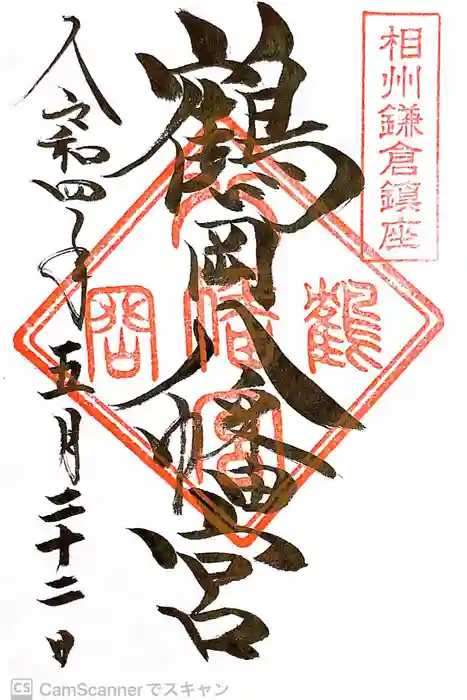 相州鎌倉鎮座
鶴岡八幡宮
鶴
岡
令和四年五月二十二日
CS CamScannerでスキャン